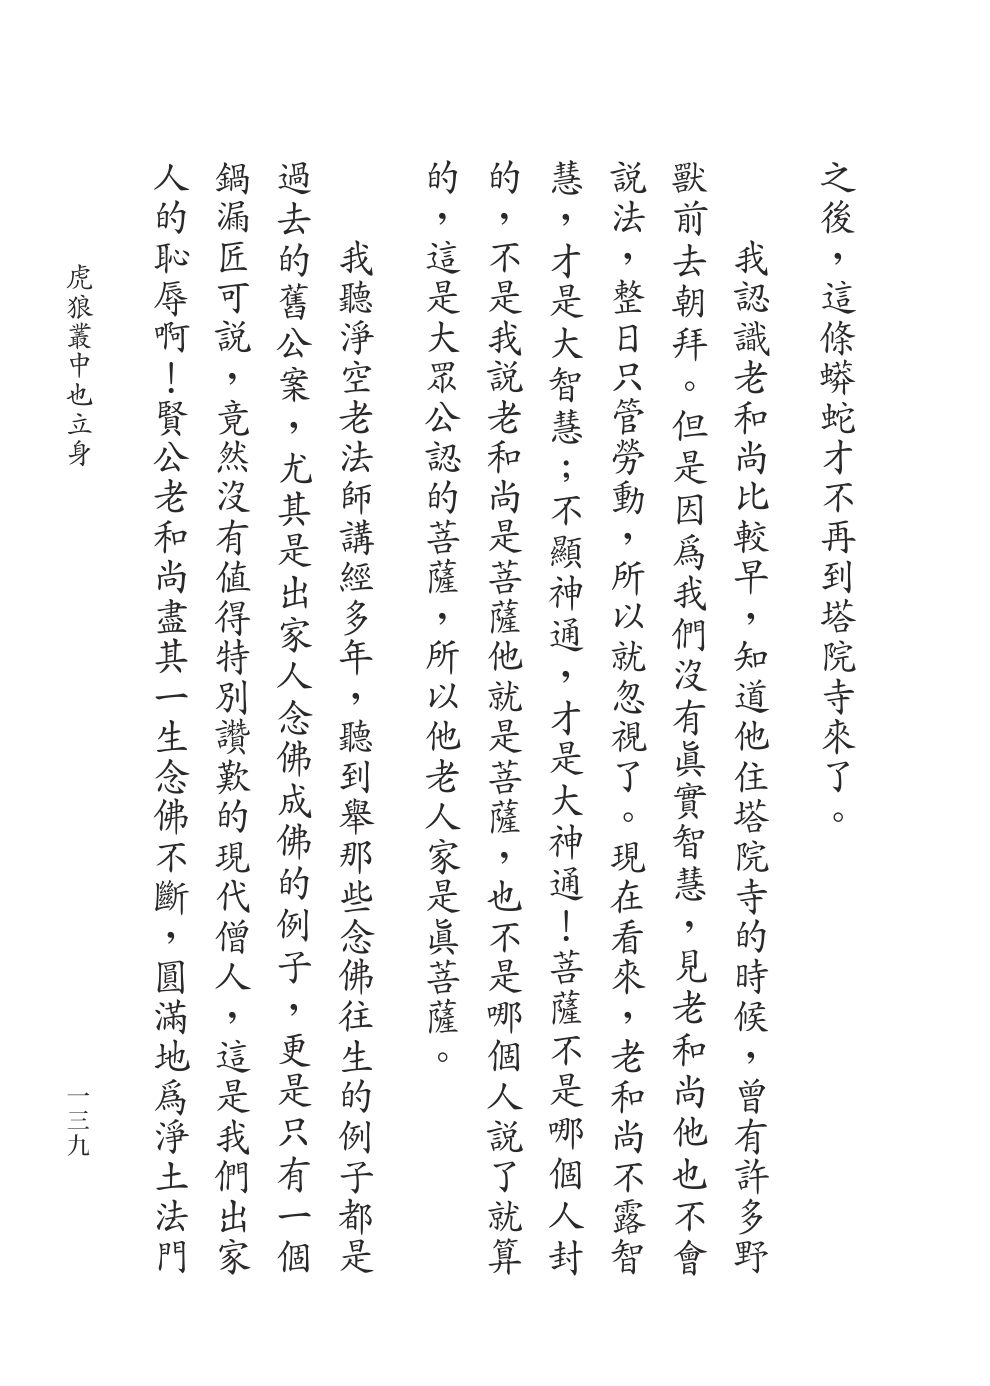 之後，這條蟒蛇才不再到塔院寺來了。
我認識老和尚比較早，知道他住塔院寺的時候，曾有許多野
獸前去朝拜。但是因爲我們沒有眞實智慧，見老和尚他也不會
説法，整日只管勞動，所以就忽視了。現在看來，老和尚不露智
慧，才是大智慧；不顯神通，才是大神通！菩薩不是哪個人封
的，不是我説老和尚是菩薩他就是菩薩，也不是哪個人説了就算
的，這是大眾公認的菩薩，所以他老人家是眞菩薩。
我聽淨空老法師講經多年，聽到舉那些念佛往生的例子都是
過去的舊公案，尤其是出家人念佛成佛的例子，更是只有一個
鍋漏匠可説，竟然沒有値得特別讚歎的現代僧人，這是我們出家
人的恥辱啊！賢公老和尚盡其一生念佛不斷，圓滿地爲淨土法門
虎狼叢中也立身
一三九